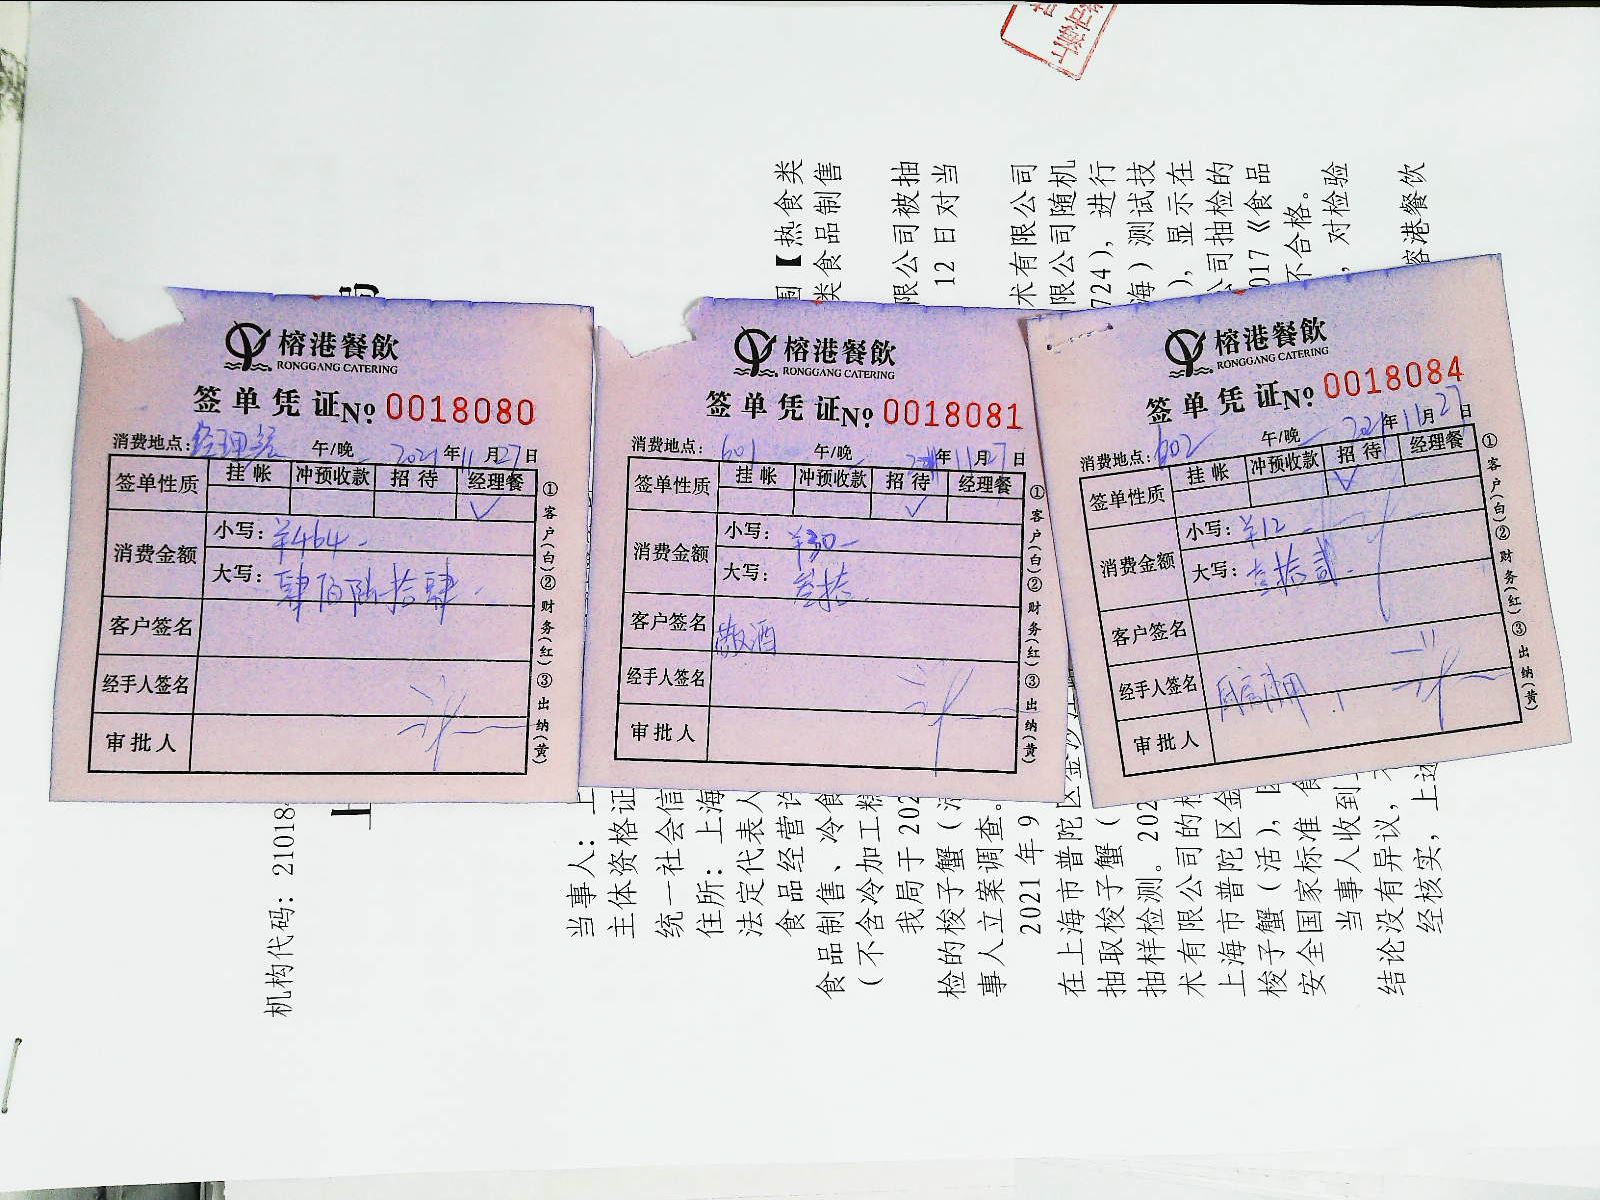 榕港餐飲
RONGGANG CATERING
签单凭证No 0018080
消费地点: 午/晚 2021年11月27日
签单性质 挂帐 冲预收款 招待 经理餐
√
消费金额 小写: ¥464-
大写: 肆佰陆拾肆
客户签名
经手人签名
审批人
①客户(白)②财务(红)③出纳(黄)
榕港餐飲
RONGGANG CATERING
签单凭证No 0018081
消费地点: 601 午/晚 年11月27日
签单性质 挂帐 冲预收款 招待 经理餐
√
消费金额 小写: ¥30-
大写: 叁拾
客户签名 散酒
经手人签名
审批人
①客户(白)②财务(红)③出纳(黄)
榕港餐飲
RONGGANG CATERING
签单凭证No 0018084
消费地点: 602 午/晚 2021年11月27日
签单性质 挂帐 冲预收款 招待 经理餐
√
消费金额 小写: ¥12
大写: 壹拾贰
客户签名
经手人签名
审批人
①客户(白)②财务(红)③出纳(黄)
机构代码: 21018
当事人: 上
主体资格证
统一社会信
住所: 上海
法定代表人
食品经营许 围【热食类
食品制售、冷食 类食品制售
(不含冷加工糕
我局于 202 限公司被抽
检的梭子蟹(活 12 日对当
事人立案调查。
2021 年 9 术有限公司
在上海市普陀区金沙江 限公司随机
抽取梭子蟹( 724), 进行
抽样检测。202 海)测试技
术有限公司的检 ), 显示在
上海市普陀区金 公司抽检的
梭子蟹(活), 017《食品
安全国家标准 食 不合格。
当事人收到上 , 对检验
结论没有异议,
经核实, 上述 榕港餐饮